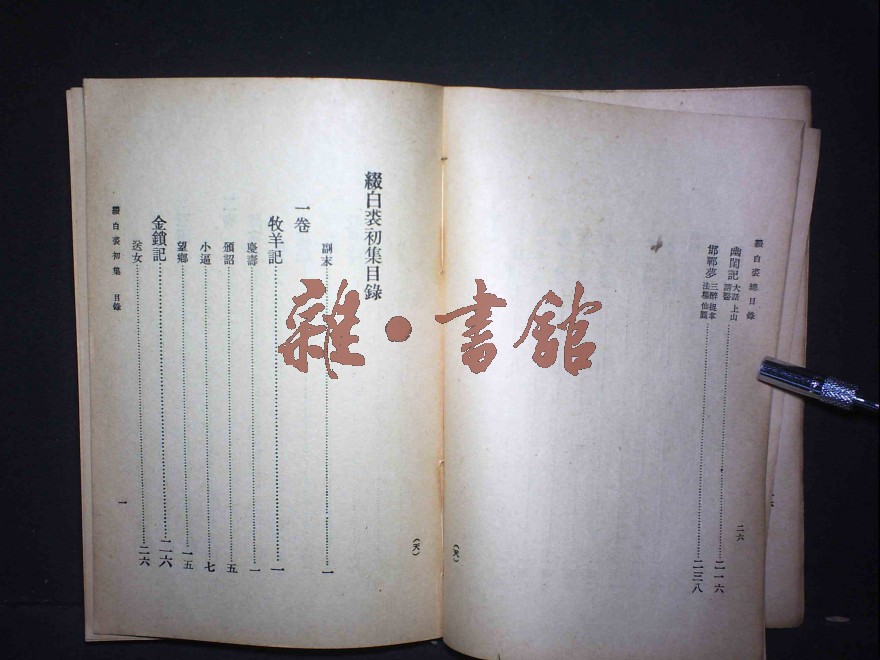 綴白裘總目錄
二六
幽閨記 大話 上山 請醫……二一六
邯鄲夢 三醉 捉拿 法場 仙圓……二三八
(天)
(天)
綴白裘初集目錄
副末……一
一卷
牧羊記……一
慶壽……一
頒詔……五
小逼……七
望鄉……一五
金鎖記……二六
送女……二六
綴白裘初集 目錄
一
雜·書館